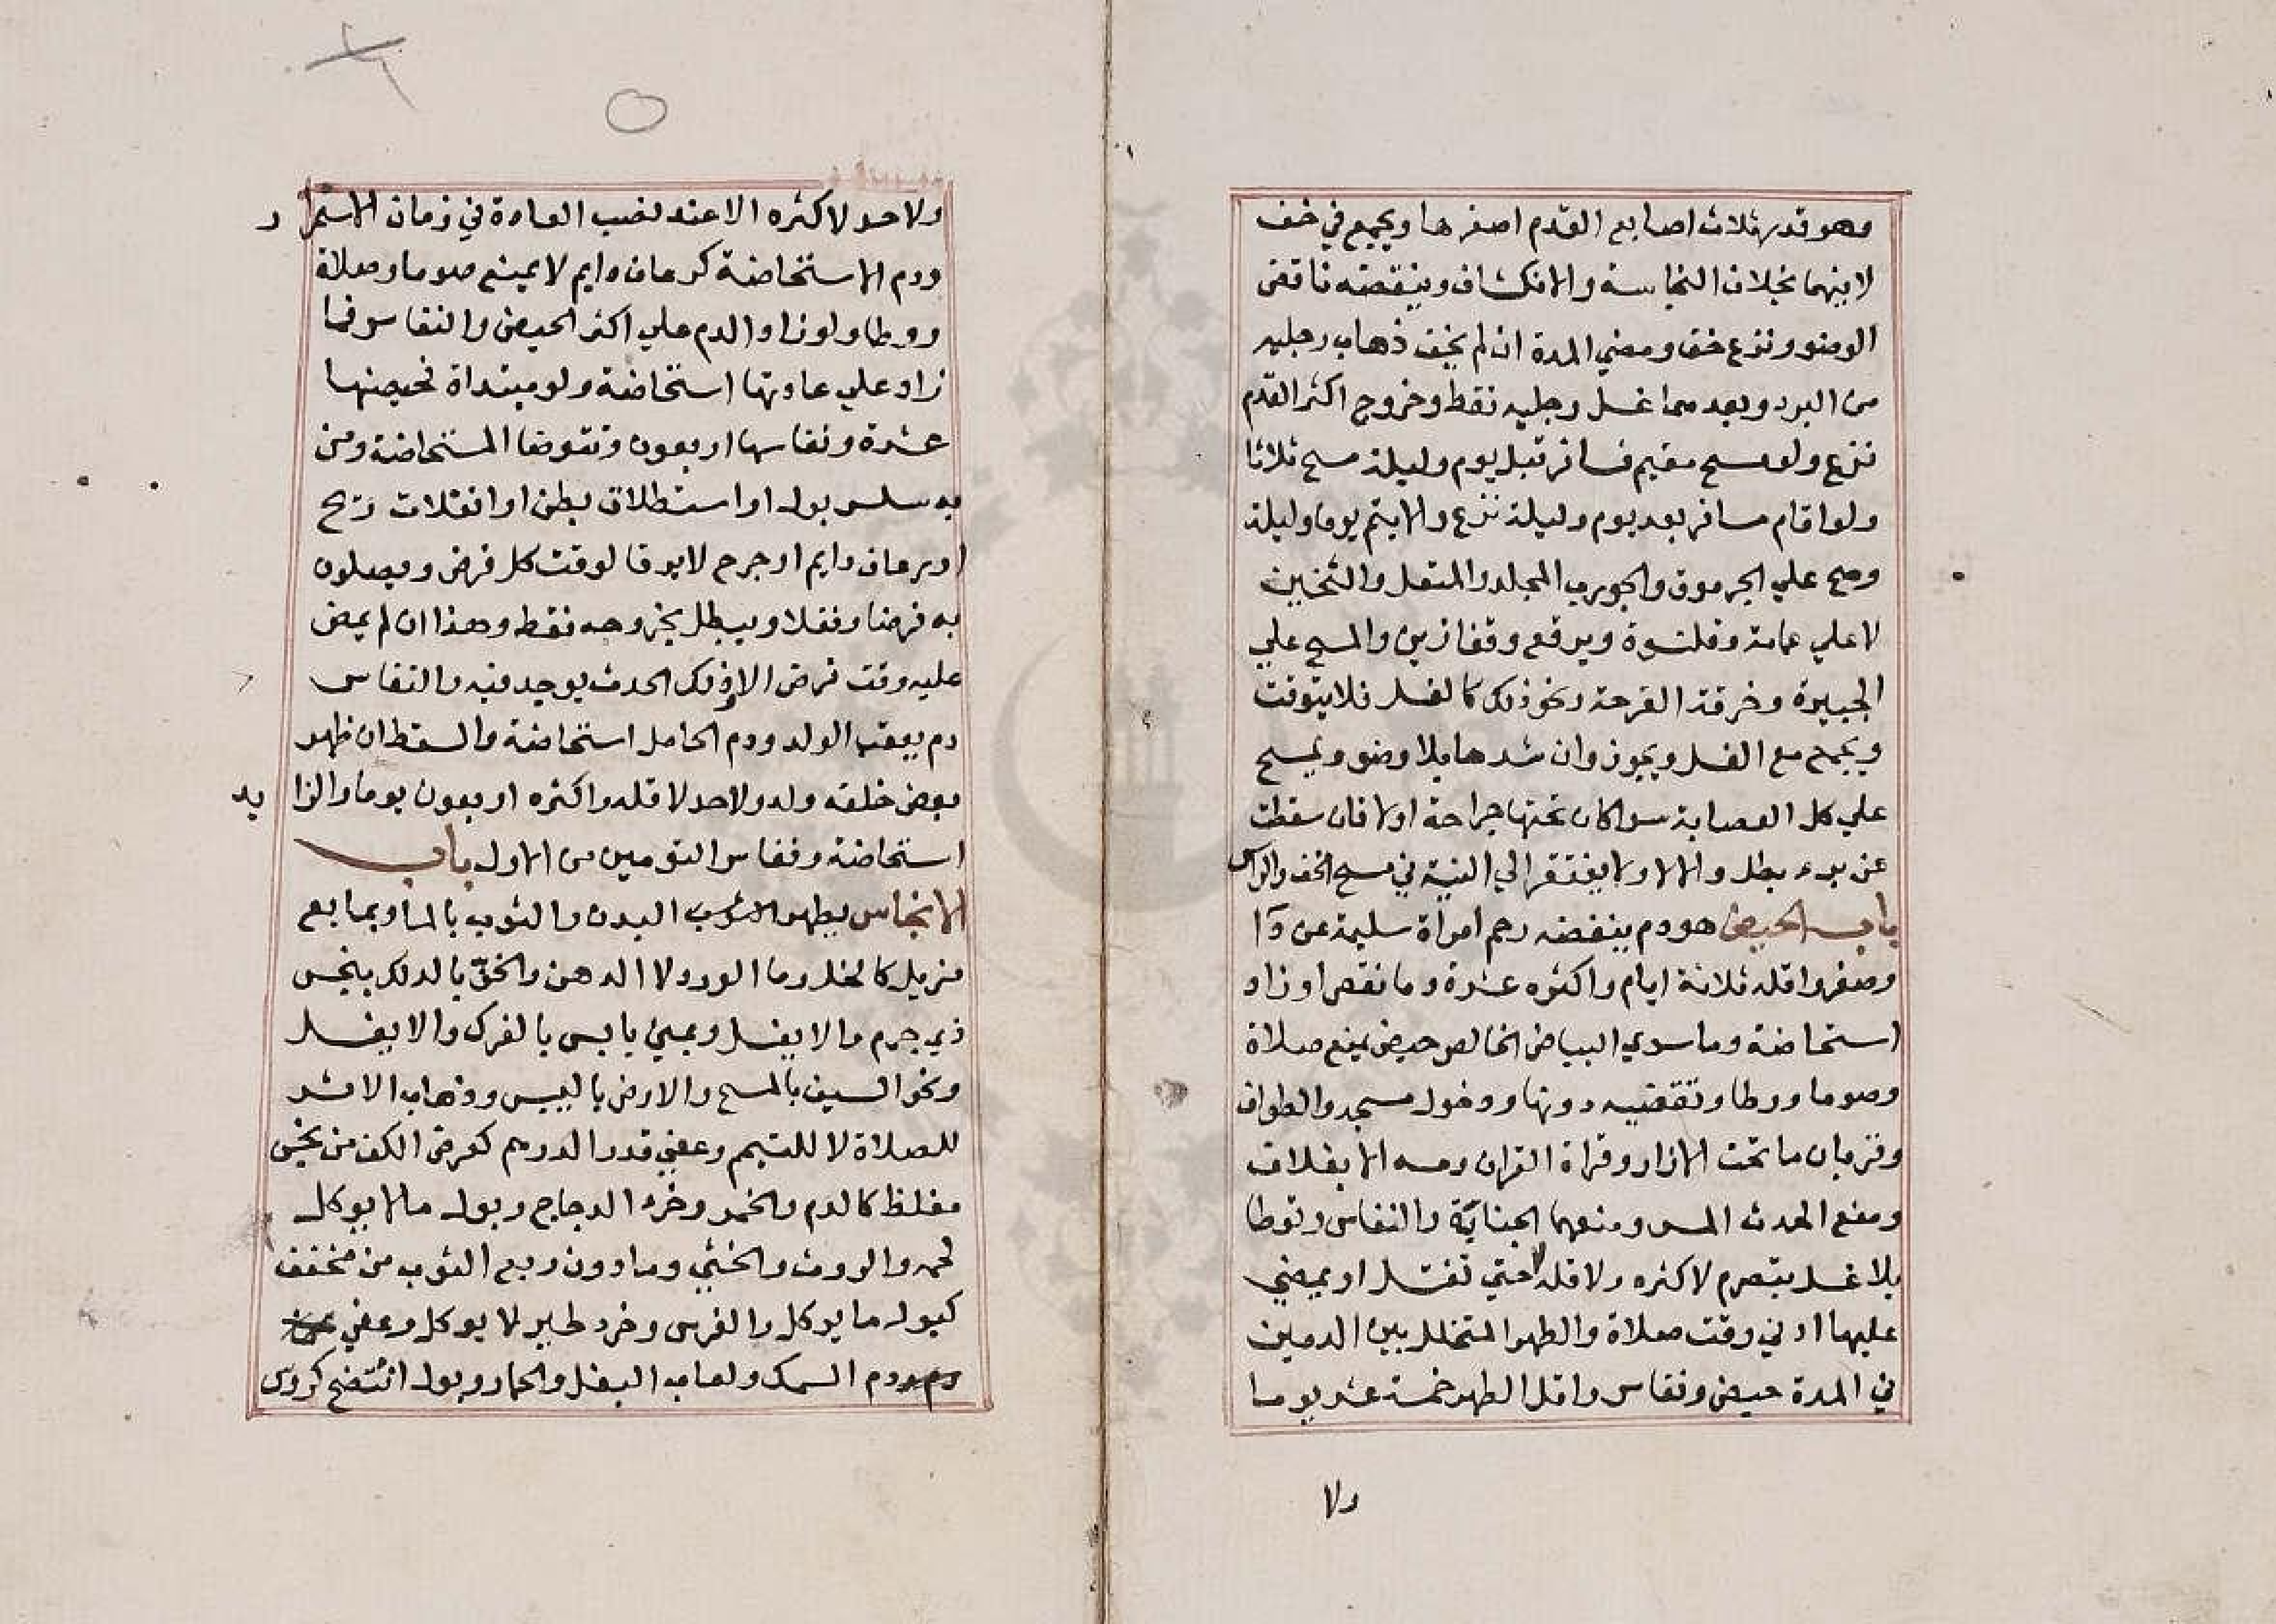 وهو قدر ثلاث اصابع القدم اصغرها ويجمع في خف
لا بينهما بخلاف النجاسة والانكشاف وينقضه ناقض
الوضو ونزع خف ومضي المدة ان لم يخف ذهاب رجليه
من البرد وبعدهما غسل رجليه فقط وخروج اكثر القدم
نزع ولو مسح مقيم فسافر قبل يوم وليلة مسح ثلاثا
ولو اقام مسافر بعد يوم وليلة نزع والا يتم يوما وليلة
وصح علي الجرموق والجورب المجلد والمنعل والثخين
لا علي عمامة وقلنسوة وبرقع وقفازين والمسح علي
الجبيرة وخرقة القرحة ونحو ذلك كالغسل فلا يتوقت
ويجمع مع الغسل ويجوز وان شدها بلا وضو ويمسح
علي كل العصابة سوا كان تحتها جراحة اولا فان سقطت
عن برء بطل والا لا ولا يفتقر الي النية في مسح الخف والراس
باب الحيض هو دم ينفضه رحم امراة سليمة عن دآ
وصغر واقله ثلاثة ايام واكثره عشرة وما نقص او زاد
استحاضة وما سوي البياض الخالص حيض يمنع صلاة
وصوما ووطا وتقضيه دونها ودخول مسجد والطواف
وقربان ما تحت الازار وقراة القران ومسه الا بغلاف
ومنع الحدث المس ومنعهما الجنابة والنفاس وتوطا
بلا غسل بتصرم لاكثره ولاقله لا حتي تغتسل او يمضي
عليها ادني وقت صلاة والطهر المتخلل بين الدمين
في المدة حيض ونفاس واقل الطهر خمسة عشر يوما
ولا
ولا حد لاكثره الا عند نصب العادة في زمان الاستمرار
ودم الاستحاضة كرعاف دايم لا يمنع صوما وصلاة
ووطا ولو زاد الدم علي اكثر الحيض والنفاس فما
زاد علي عادتها استحاضة ولو مبتداة فحيضها
عشرة ونفاسها اربعون وتتوضا المستحاضة ومن
به سلس بول او استطلاق بطن او انفلات ريح
او رعاف دايم او جرح لا يرقا لوقت كل فرض ويصلون
به فرضا ونفلا ويبطل بخروجه فقط وهذا ان لم يمض
عليه وقت فرض الا وذلك الحدث يوجد فيه والنفاس
دم يعقب الولد ودم الحامل استحاضة والسقط ان ظهر
بعض خلقه ولد ولا حد لاقله واكثره اربعون يوما والزايد
استحاضة ونفاس التومين من الاول باب
الانجاس يطهر البدن والثوب بالما وبمايع
مزيل كالخل وما الورد لا الدهن والخف بالدلك بنجس
ذي جرم والا يغسل وبمني يابس بالفرك والا يغسل
ونحو السيف بالمسح والارض باليبس وذهاب الاثر
للصلاة لا للتيمم وعفي قدر الدرهم كعرض الكف من نجس
مغلظ كالدم والخمر وخرء الدجاج وبول مالا يوكل
لحمه والروث والخثي وما دون ربع الثوب من مخفف
كبول ما يوكل والفرس وخرء طير لا يوكل وعفي
ودم السمك ولعاب البغل والحمار وبول انتضح كروس